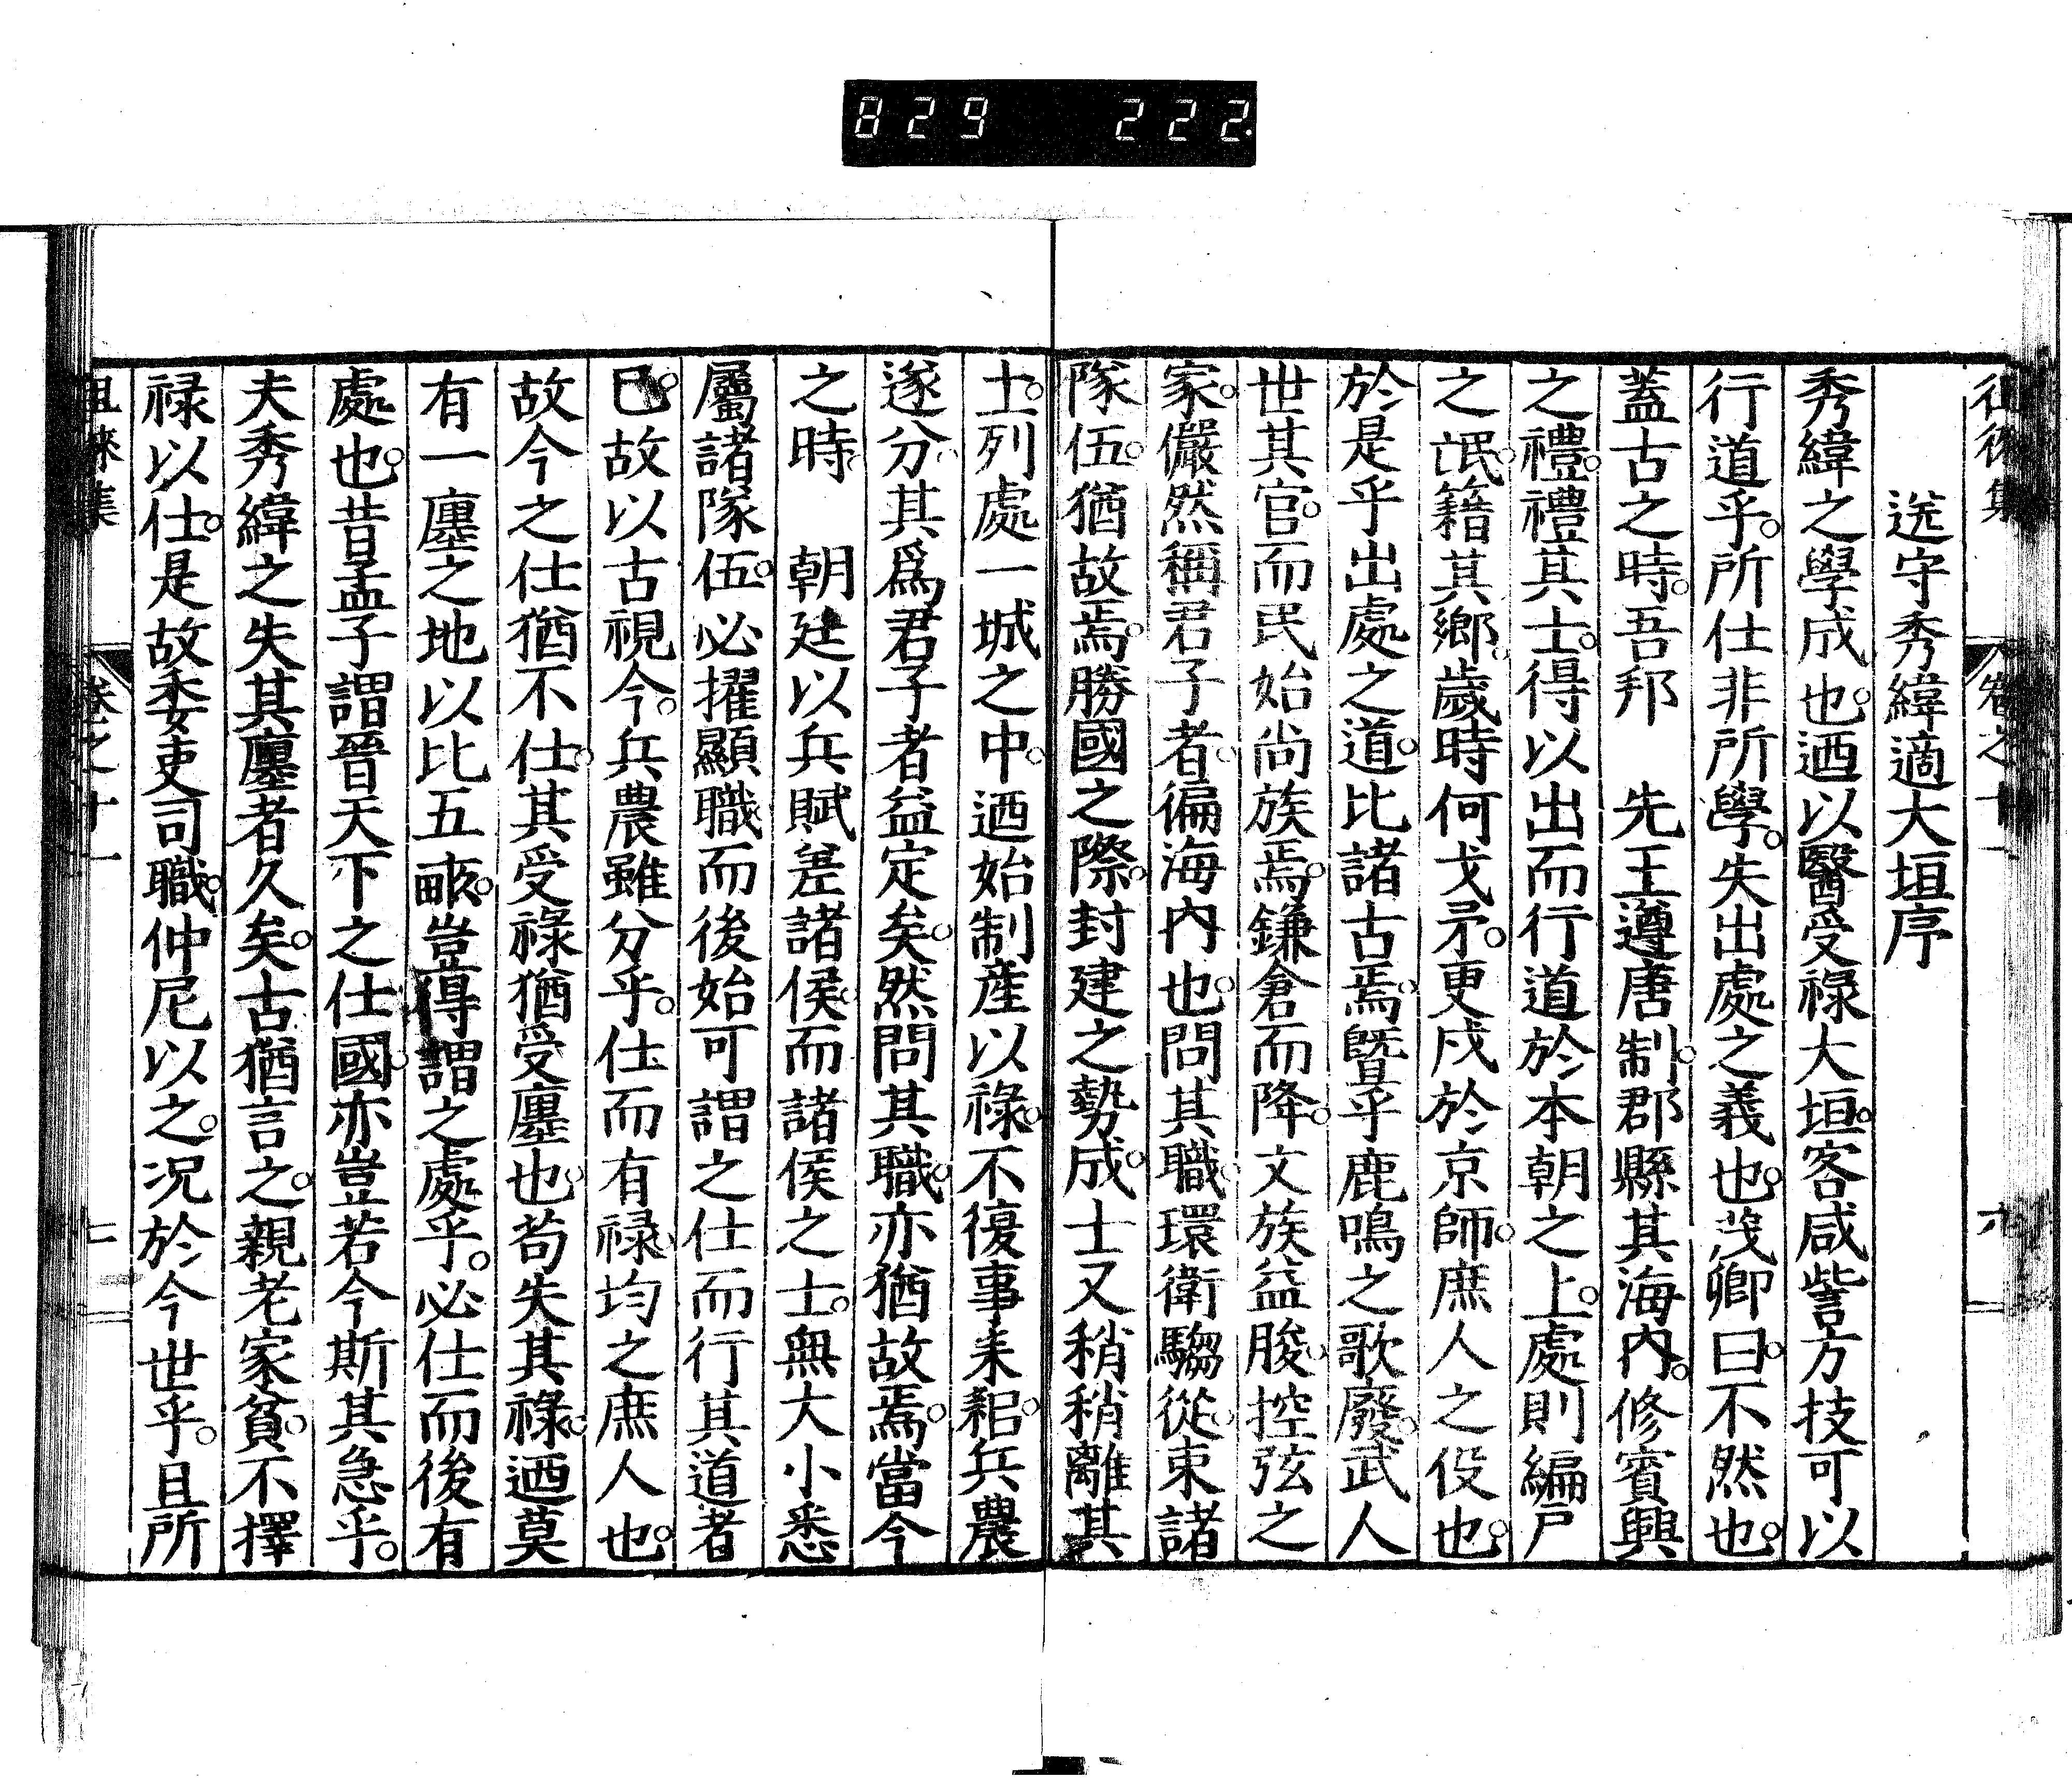 829 222
徂徠集 卷之十一
送守秀緯適大垣序
秀緯之學成也。迺以醫受祿大垣。客咸訾方技可以
行道乎。所仕非所學。失出處之義也。茂卿曰。不然也。
蓋古之時。吾邦 先王遵唐制。郡縣其海內。修賓興
之禮。禮其士。得以出而行道於本朝之上。處則編戸
之氓。籍其鄉。歲時何戈矛。更戍於京師。庶人之役也。
於是乎出處之道。比諸古焉。曁乎鹿鳴之歌廢。武人
世其官。而民始尚族焉。鎌倉而降。文族益朘。控弦之
家。儼然稱君子者。徧海內也。問其職。環衛騶從。束諸
隊伍。猶故焉。勝國之際。封建之勢成。士又稍稍離其
土。列處一城之中。迺始制産以祿。不復事耒耜。兵農
遂分。其爲君子者益定矣。然問其職。亦猶故焉。當今
之時。 朝廷以兵賦差諸侯。而諸侯之士。無大小悉
屬諸隊伍。必擢顯職而後始可謂之仕而行其道者
已。故以古視今。兵農雖分乎。仕而有祿。均之庶人也。
故今之仕猶不仕。其受祿猶受廛也。苟失其祿。迺莫
有一廛之地以比五畝。豈得謂之處乎。必仕而後有
處也。昔孟子謂晉天下之仕國。亦豈若今斯其急乎。
夫秀緯之失其廛者久矣。古猶言之。親老家貧。不擇
祿以仕。是故委吏司職。仲尼以之。況於今世乎。且所
徂徠集 卷之十一